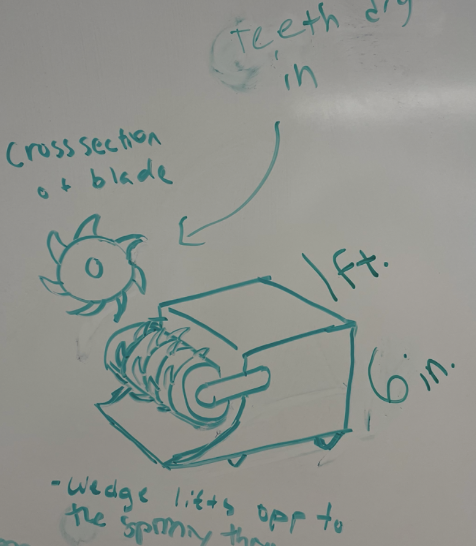 teeth dig
in
Cross section
of blade
1 ft.
6 in.
- wedge lifts opp to
the spinny